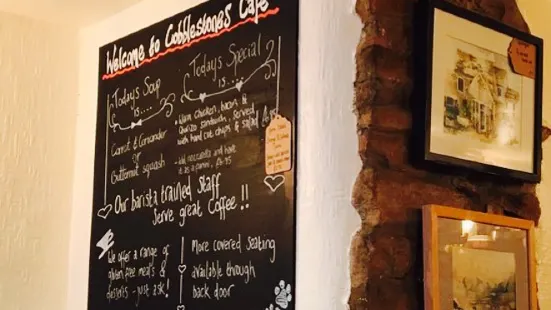 Welcome to Cobblestones Cafe
Today's Soup
is....
Carrot & Coriander
or
Butternut squash
Today's Special
is....
Warm chicken, bacon &
sandwich, served
with hand cut chips & salad
and have
it as a panini,
Our barista trained Staff
Serve great Coffee!!
We offer a range of
gluten free meals &
desserts - just ask!
More covered seating
available through
back door